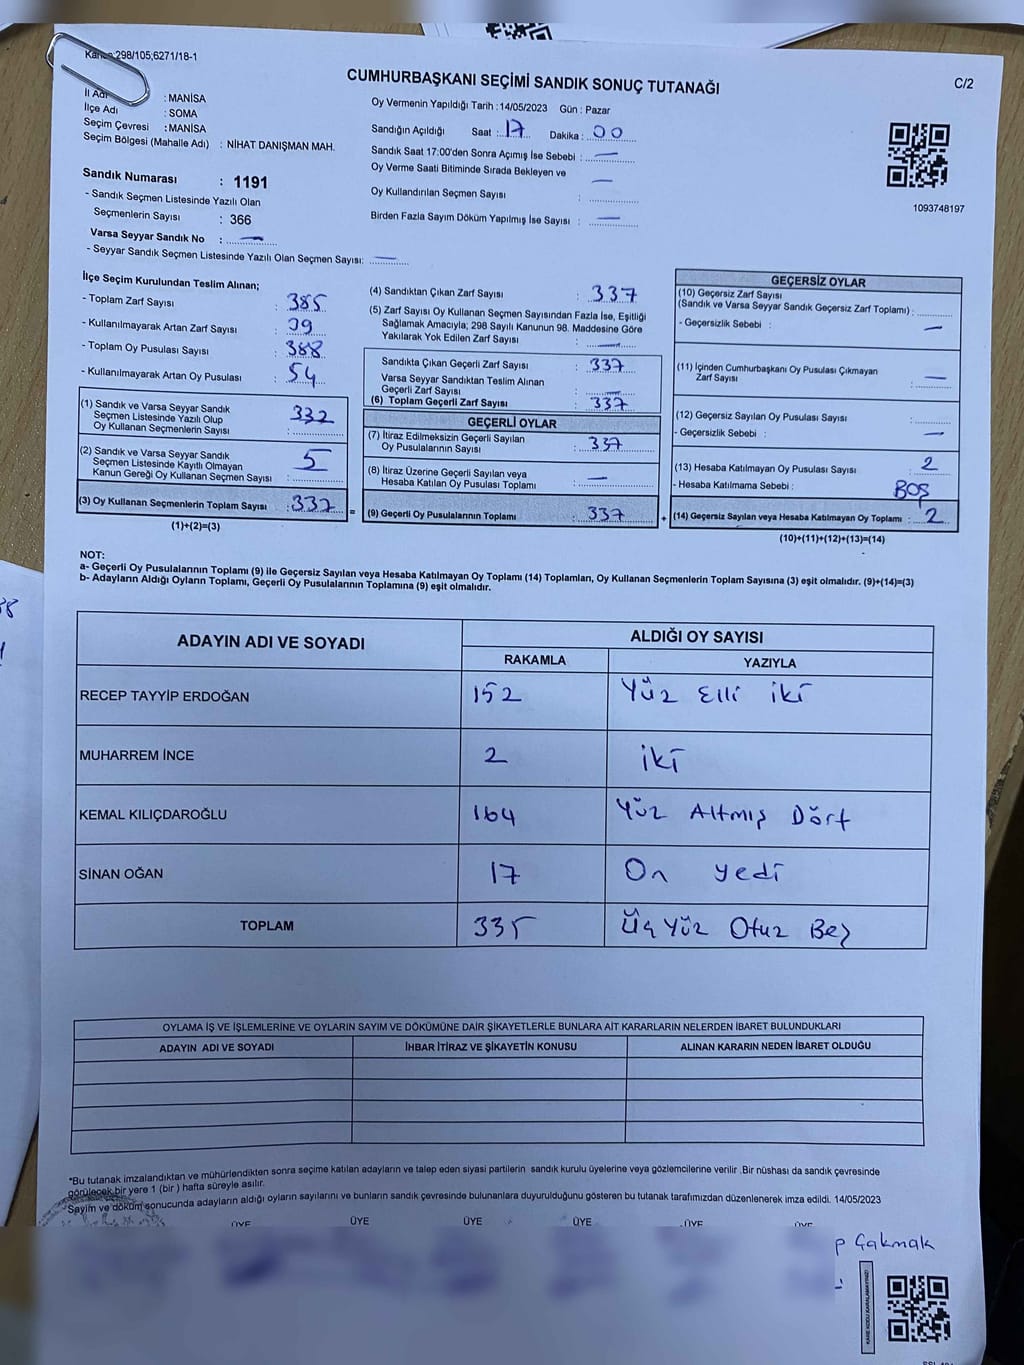 Kanun 298/105;6271/18-1
CUMHURBAŞKANI SEÇİMİ SANDIK SONUÇ TUTANAĞI
C/2
İl Adı : MANİSA
İlçe Adı : SOMA
Seçim Çevresi : MANİSA
Seçim Bölgesi (Mahalle Adı) : NİHAT DANIŞMAN MAH.
Sandık Numarası : 1191
- Sandık Seçmen Listesinde Yazılı Olan
Seçmenlerin Sayısı : 366
Varsa Seyyar Sandık No : —
- Seyyar Sandık Seçmen Listesinde Yazılı Olan Seçmen Sayısı: —
Oy Vermenin Yapıldığı Tarih : 14/05/2023 Gün : Pazar
Sandığın Açıldığı Saat : 17 Dakika : 00
Sandık Saat 17:00'den Sonra Açımış İse Sebebi : —
Oy Verme Saati Bitiminde Sırada Bekleyen ve —
Oy Kullandırılan Seçmen Sayısı :
Birden Fazla Sayım Döküm Yapılmış İse Sayısı : —
1093748197
İlçe Seçim Kurulundan Teslim Alınan;
- Toplam Zarf Sayısı : 385
- Kullanılmayarak Artan Zarf Sayısı : 39
- Toplam Oy Pusulası Sayısı : 388
- Kullanılmayarak Artan Oy Pusulası : 54
(1) Sandık ve Varsa Seyyar Sandık
Seçmen Listesinde Yazılı Olup
Oy Kullanan Seçmenlerin Sayısı : 332
(2) Sandık ve Varsa Seyyar Sandık
Seçmen Listesinde Kayıtlı Olmayan
Kanun Gereği Oy Kullanan Seçmen Sayısı : 5
(3) Oy Kullanan Seçmenlerin Toplam Sayısı : 337 =
(1)+(2)=(3)
(4) Sandıktan Çıkan Zarf Sayısı : 337
(5) Zarf Sayısı Oy Kullanan Seçmen Sayısından Fazla İse, Eşitliği
Sağlamak Amacıyla; 298 Sayılı Kanunun 98. Maddesine Göre
Yakılarak Yok Edilen Zarf Sayısı : —
Sandıkta Çıkan Geçerli Zarf Sayısı : 337
Varsa Seyyar Sandıktan Teslim Alınan
Geçerli Zarf Sayısı : —
(6) Toplam Geçerli Zarf Sayısı : 337
GEÇERLİ OYLAR
(7) İtiraz Edilmeksizin Geçerli Sayılan
Oy Pusulalarının Sayısı : 337
(8) İtiraz Üzerine Geçerli Sayılan veya
Hesaba Katılan Oy Pusulası Toplamı : —
(9) Geçerli Oy Pusulalarının Toplamı : 337 +
GEÇERSİZ OYLAR
(10) Geçersiz Zarf Sayısı
(Sandık ve Varsa Seyyar Sandık Geçersiz Zarf Toplamı) :
- Geçersizlik Sebebi : —
(11) İçinden Cumhurbaşkanı Oy Pusulası Çıkmayan
Zarf Sayısı : —
(12) Geçersiz Sayılan Oy Pusulası Sayısı :
- Geçersizlik Sebebi : —
(13) Hesaba Katılmayan Oy Pusulası Sayısı : 2
- Hesaba Katılmama Sebebi : BOŞ
(14) Geçersiz Sayılan veya Hesaba Katılmayan Oy Toplamı : 2
(10)+(11)+(12)+(13)=(14)
NOT:
a- Geçerli Oy Pusulalarının Toplamı (9) ile Geçersiz Sayılan veya Hesaba Katılmayan Oy Toplamı (14) Toplamları, Oy Kullanan Seçmenlerin Toplam Sayısına (3) eşit olmalıdır. (9)+(14)=(3)
b- Adayların Aldığı Oyların Toplamı, Geçerli Oy Pusulalarının Toplamına (9) eşit olmalıdır.
ADAYIN ADI VE SOYADI ALDIĞI OY SAYISI
RAKAMLA YAZIYLA
RECEP TAYYİP ERDOĞAN 152 Yüz Elli iki
MUHARREM İNCE 2 iki
KEMAL KILIÇDAROĞLU 164 Yüz Altmış Dört
SİNAN OĞAN 17 On yedi
TOPLAM 335 Üç Yüz Otuz Beş
OYLAMA İŞ VE İŞLEMLERİNE VE OYLARIN SAYIM VE DÖKÜMÜNE DAİR ŞİKAYETLERLE BUNLARA AİT KARARLARIN NELERDEN İBARET BULUNDUKLARI
ADAYIN ADI VE SOYADI İHBAR İTİRAZ VE ŞİKAYETİN KONUSU ALINAN KARARIN NEDEN İBARET OLDUĞU
*Bu tutanak imzalandıktan ve mühürlendikten sonra seçime katılan adayların ve talep eden siyasi partilerin sandık kurulu üyelerine veya gözlemcilerine verilir .Bir nüshası da sandık çevresinde
görülecek bir yere 1 (bir ) hafta süreyle asılır.
Sayım ve döküm sonucunda adayların aldığı oyların sayılarını ve bunların sandık çevresinde bulunanlara duyurulduğunu gösteren bu tutanak tarafımızdan düzenlenerek imza edildi. 14/05/2023
ÜYE ÜYE ÜYE ÜYE ÜYE ÜYE
p Çakmak